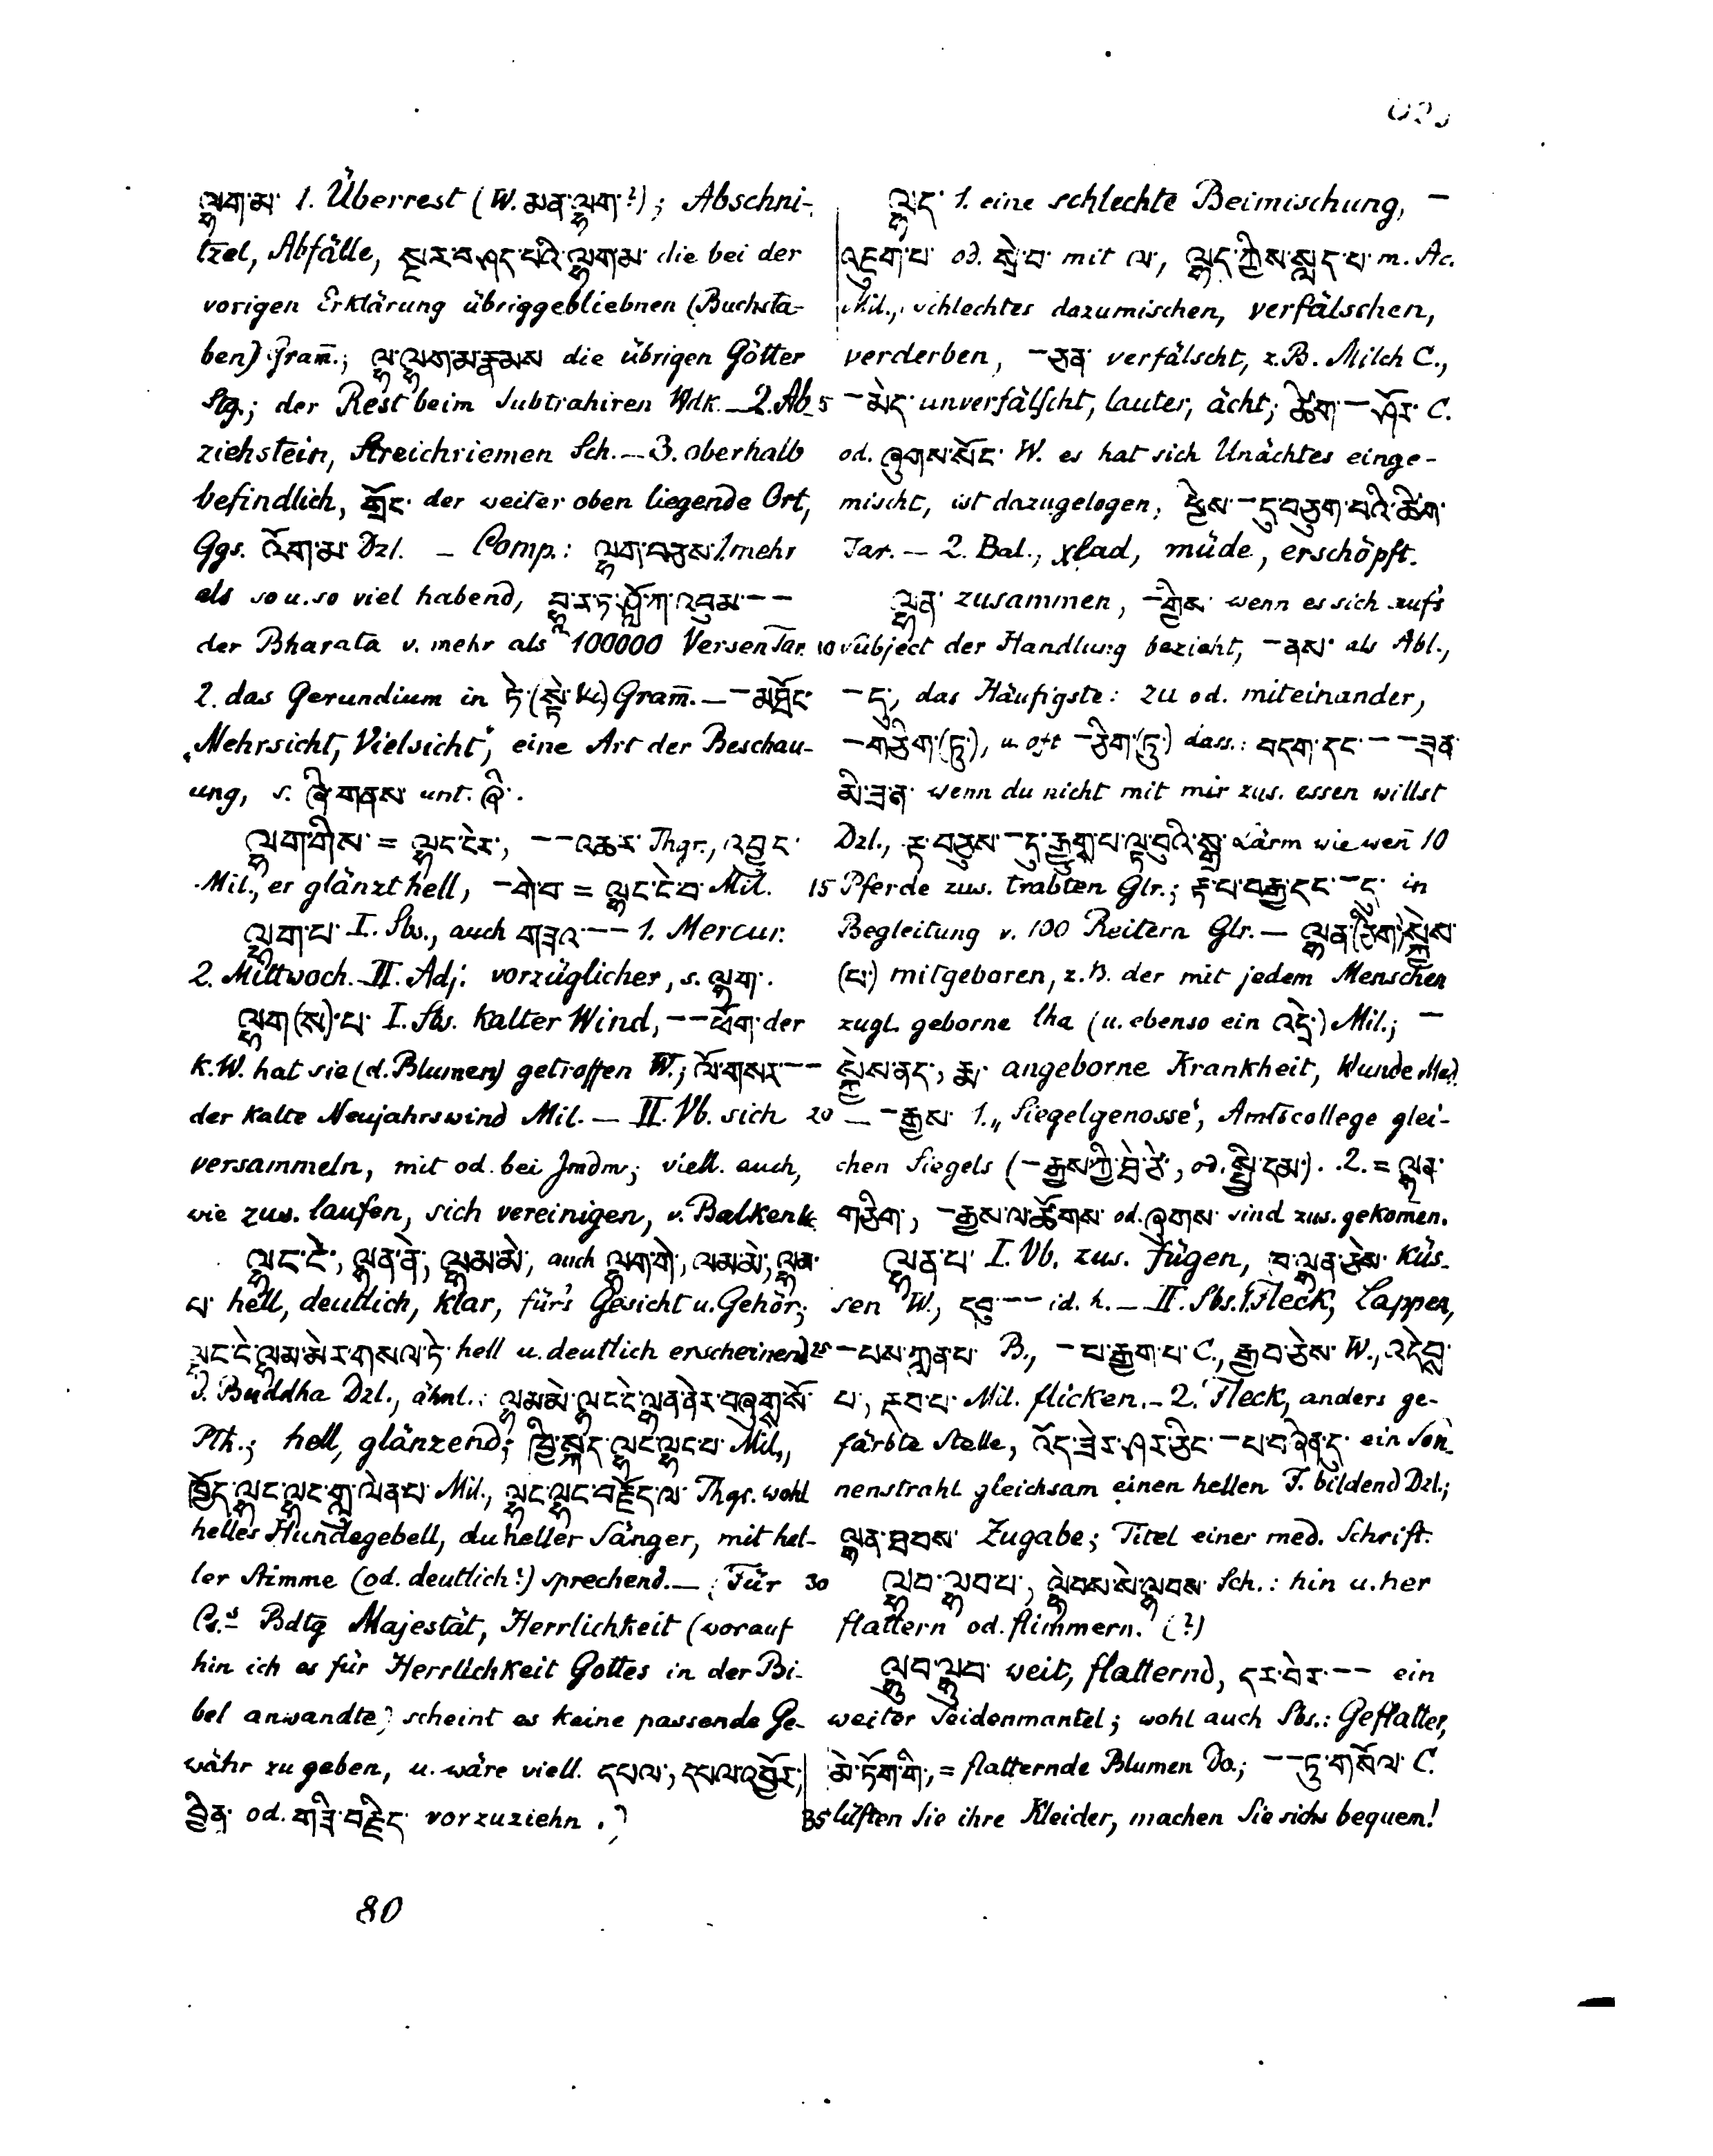 ལྷག་མ་ 1. Überrest (W. མན་ལྷག་?); Abschni-
tzel, Abfälle, སྔར་བཤད་པའི་ལྷག་མ་ die bei der
vorigen Erklärung übriggebliebnen (Buchsta-
ben) Gram̄.; ལྷ་ལྷག་མ་རྣམས die übrigen Götter
Stg.; der Rest beim Subtrahiren Wdk. — 2. Ab-
ziehstein, Streichriemen Sch. — 3. oberhalb
befindlich, གྲོང་ der weiter oben liegende Ort,
Ggs. འོག་མ་ Dzl. — Comp.: ལྷག་བཅས་ 1. mehr
als so u. so viel habend, འབུམ་ — —
der Bharata v. mehr als 100000 Versen Tar.
2. das Gerundium in ཏེ་ (སྟེ་ &c) Gram̄. — — མཐོང་
„Mehrsicht, Vielsicht“, eine Art der Beschau-
ung, s. ཞི་གནས་ unt. ཞི་.
ལྷག་གིས་ = ལྷང་ངེར་, — — འཆར་ Thgr., འབྱུང་
Mil., er glänzt hell, — གེ་བ་ = ལྷང་ངེ་བ་ Mil.
ལྷག་པ་ I. Sbs., auch གཟའ་ — — 1. Mercur.
2. Mittwoch. — II. Adj: vorzüglicher, s. ལྷག་.
ལྷག(ས)་པ་ I. Sbs. Kalter Wind, — — ཕོག་ der
K. W. hat sie (d. Blumen) getroffen W.; ལོ་གསར་ — —
der kalte Neujahrswind Mil. — II. Vb. sich
versammeln, mit od. bei Jmdm; viell. auch,
wie zus. laufen, sich vereinigen, v. Balken &c.
ལྷང་ངེ་, ལྷན་ནེ་, ལྷམ་མེ་, auch ལྷག་གེ་, ལམ་མེ་, ལྷན་
པ་ hell, deutlich, klar, für's Gesicht u. Gehör;
ལྷང་ངེ་ལྷམ་མེར་གསལ་ཏེ་ hell u. deutlich erscheinend
d. Buddha Dzl., ähnl.: ལྷམ་མེ་ལྷང་ངེ་ལྷན་ནེར་བཞུགས་སོ་
Pth.; hell, glänzend; ཁྱི་སྐད་ལྷང་ལྷང་པ་ Mil.,
ཁྱོད་ལྷང་ལྷང་གླུ་ལེན་པ་ Mil., ལྷང་ལྷང་བརྗོད་ལ་ Thgr. wohl
helles Hundegebell, du heller Sänger, mit hel-
ler Stimme (od. deutlich?) sprechend. — Für
Cs.s Bdtg Majestät, Herrlichkeit (worauf
hin ich es für Herrlichkeit Gottes in der Bi-
bel anwandte) scheint es keine passende Ge-
währ zu geben, u. wäre viell. དཔལ་, དཔལ་འབྱོར་,
བྱིན་ od. གཟི་བརྗིད་ vorzuziehn.
ལྷད་ 1. eine schlechte Beimischung, —
འཇུག་པ་ od. སྲེ་བ་ mit ལ་, ལྷད་ཀྱིས་སླད་པ་ m. Ac.
Mil., schlechtes dazumischen, verfälschen,
verderben, — ཅན་ verfälscht, z. B. Milch C.,
5 — མེད་ unverfälscht, lauter, ächt; ཚིག་ — ཤོར་ C.
od. ཞུགས་སོང་ W. es hat sich Unächtes einge-
mischt, ist dazugelogen; ཕྱིས་ — དུ་བཅུག་པའི་ཚིག་
Tar. — 2. Bal., xlad, müde, erschöpft.
ལྷན་ zusammen, — གྱིས་ wenn es sich auf's
10 Subject der Handlung bezieht, — ནས་ als Abl.,
— དུ་, das Häufigste: zu od. miteinander,
— གཅིག་(ཏུ་), u. oft — ཅིག་(ཏུ་) dass.: བདག་དང་ — — ཟན་
མི་ཟན་ wenn du nicht mit mir zus. essen willst
Dzl., རྟ་བཅུས་ — དུ་རྒྱུག་པ་ལྟ་བུའི་སྒྲ་ Lärm wie wen̄ 10
15 Pferde zus. trabten Glr.; རྟ་པ་བརྒྱ་དང་ — དུ་ in
Begleitung v. 100 Reitern Glr. — ལྷན་(ཅིག་)སྐྱེས་
(པ་) mitgeboren, z. B. der mit jedem Menschen
zugl. geborne lha (u. ebenso ein འདྲེ་) Mil.; —
སྐྱེས་ནད་, རྨ་ angeborne Krankheit, Wunde Med.
20 — — རྒྱས་ 1. „Siegelgenosse“, Amtscollege glei-
chen Siegels (— རྒྱས་ཀྱི་ཐེ་ཙེ་, od. སྤྱི་དམ་). 2. = ལྷན་
གཅིག་, — རྒྱས་ལ་ཚོགས་ od. ཞུགས་ sind zus. gekomen.
ལྷན་པ་ I. Vb. zus. fügen, ཁ་ལྷན་ཅེས་ Küs-
sen W., དབུ་ — — id. h. — II. Sbs. 1. Fleck, Lappen,
25 — པས་ཀླན་པ་ B., — པ་རྒྱག་པ་ C., རྒྱབ་ཅེས་ W., འདེབས་
པ་, Mil. flicken. — 2. Fleck, anders ge-
färbte Stelle, འོད་ཟེར་ཤར་ཅིང་ — པ་བཞིན་དུ་ ein Son-
nenstrahl gleichsam einen hellen F. bildend Dzl.;
ལྷན་ཐབས་ Zugabe; Titel einer med. Schrift.
30 ལྷབ་ལྷབ་པ་, ལྷབས་སེ་ལྷབས་ Sch.: hin u. her
flattern od. flimmern. (?)
ལྷུབ་ལྷུབ་ weit, flatternd, དར་བེར་ — — ein
weiter Seidenmantel; wohl auch Sbs.: Geflatter,
མེ་ཏོག་གི་, = flatternde Blumen Do.; — — ཏུ་གསོལ་ C.
35 lüften Sie ihre Kleider, machen Sie sichs bequem!
80